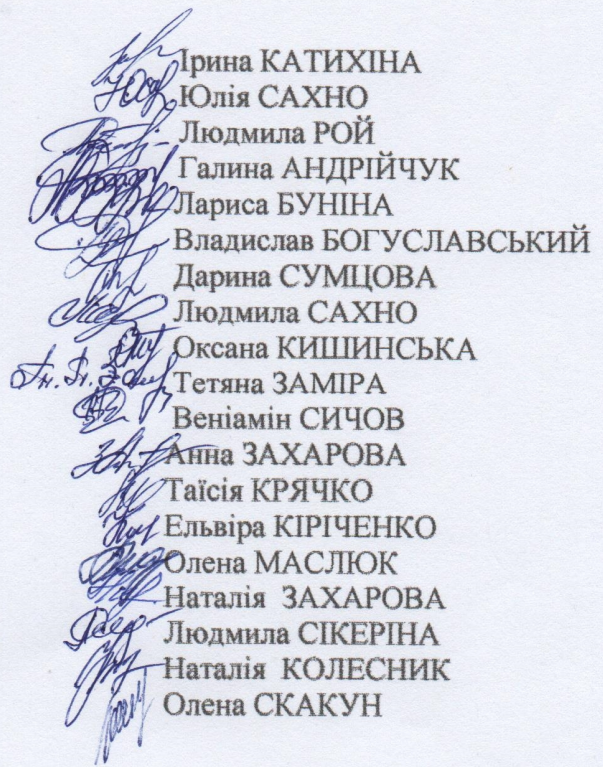 Ірина КАТИХІНА
Юлія САХНО
Людмила РОЙ
Галина АНДРІЙЧУК
Лариса БУНІНА
Владислав БОГУСЛАВСЬКИЙ
Дарина СУМЦОВА
Людмила САХНО
Оксана КИШИНСЬКА
Тетяна ЗАМІРА
Веніамін СИЧОВ
Анна ЗАХАРОВА
Таїсія КРЯЧКО
Ельвіра КІРІЧЕНКО
Олена МАСЛЮК
Наталія ЗАХАРОВА
Людмила СІКЕРІНА
Наталія КОЛЕСНИК
Олена СКАКУН